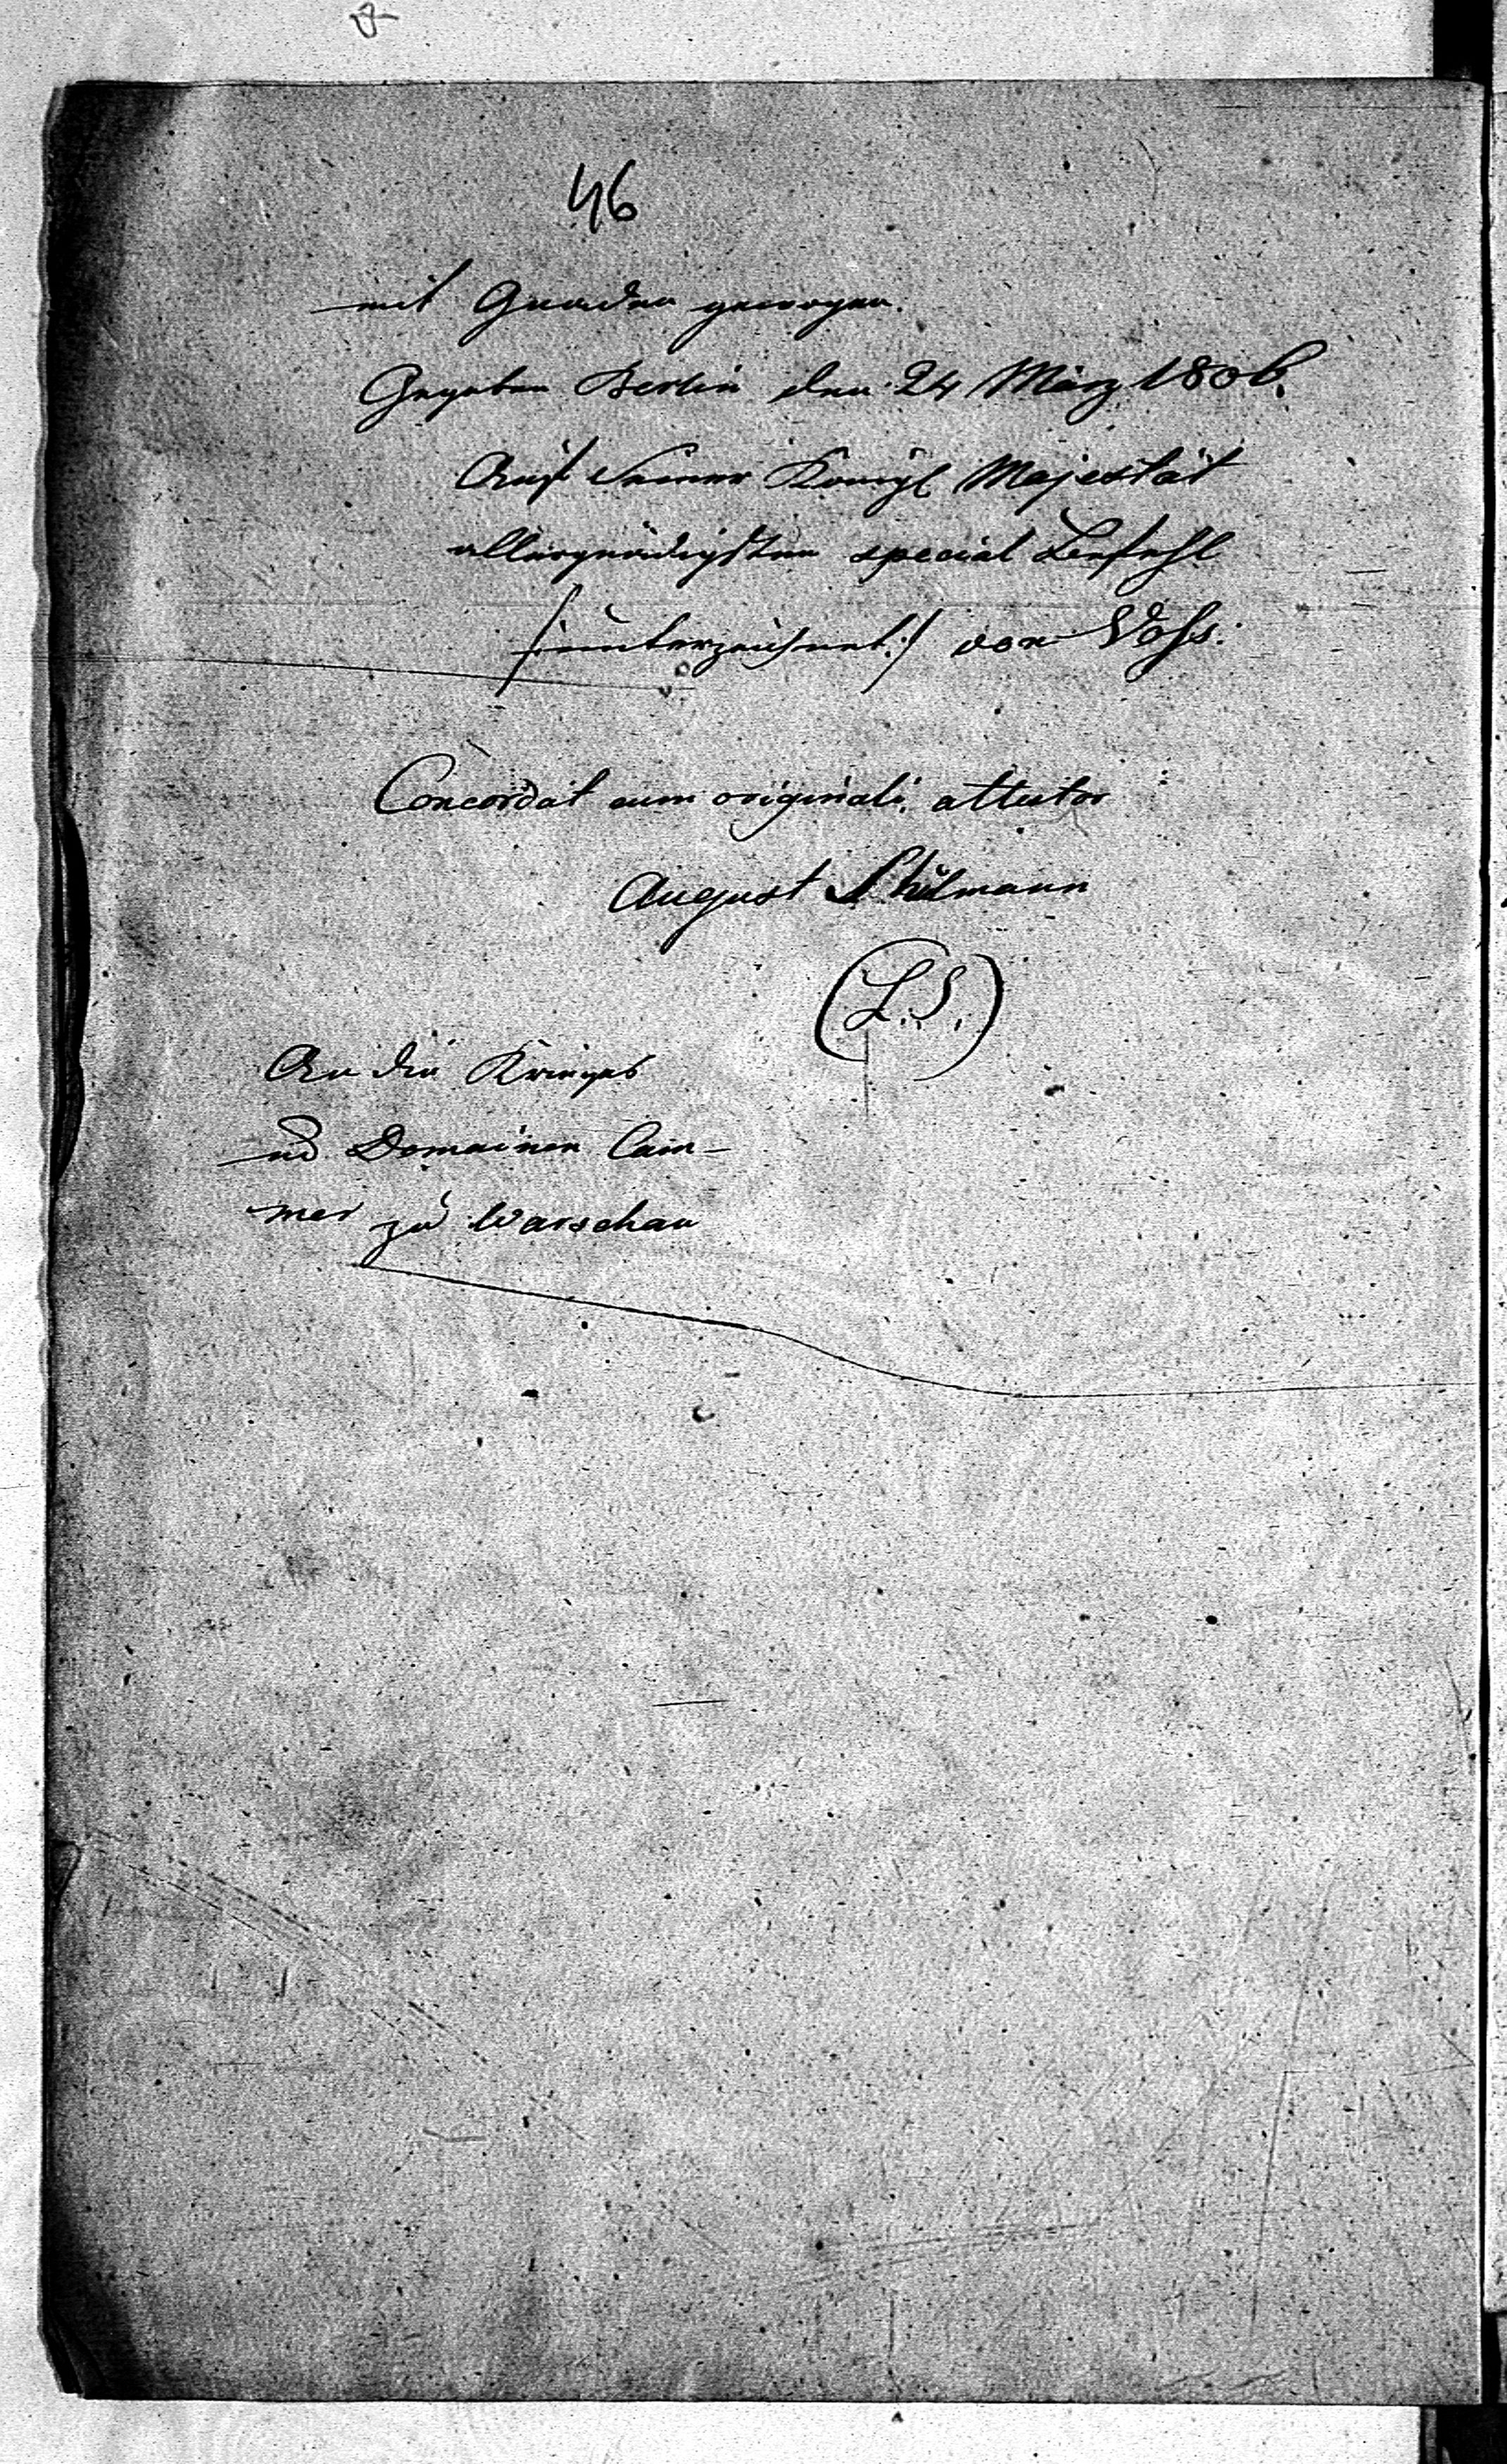 46
mit Gnaden gewogen.
Gegeben Berlin den 24 März 1806.
Auf Seiner Königl Majestät
allergnädigsten special Befehl
/:unterzeichnet:/ von Voss:
Concordat cum originali, attestor
August
(L.S.)
An die Krieges
und Domainen Cam-
mer zu Warschau